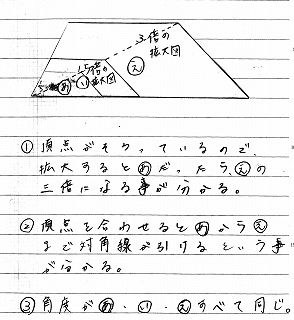 3倍の
拡大図
1.5倍の
拡大図
あ
い
え
① 頂点がそろっているので、
拡大するとあだったら、えの
三倍になる事が分かる。
② 頂点を合わせるとあからえ
まで対角線が引けるという事
が分かる。
③ 角度があ・い・えすべて同じ。